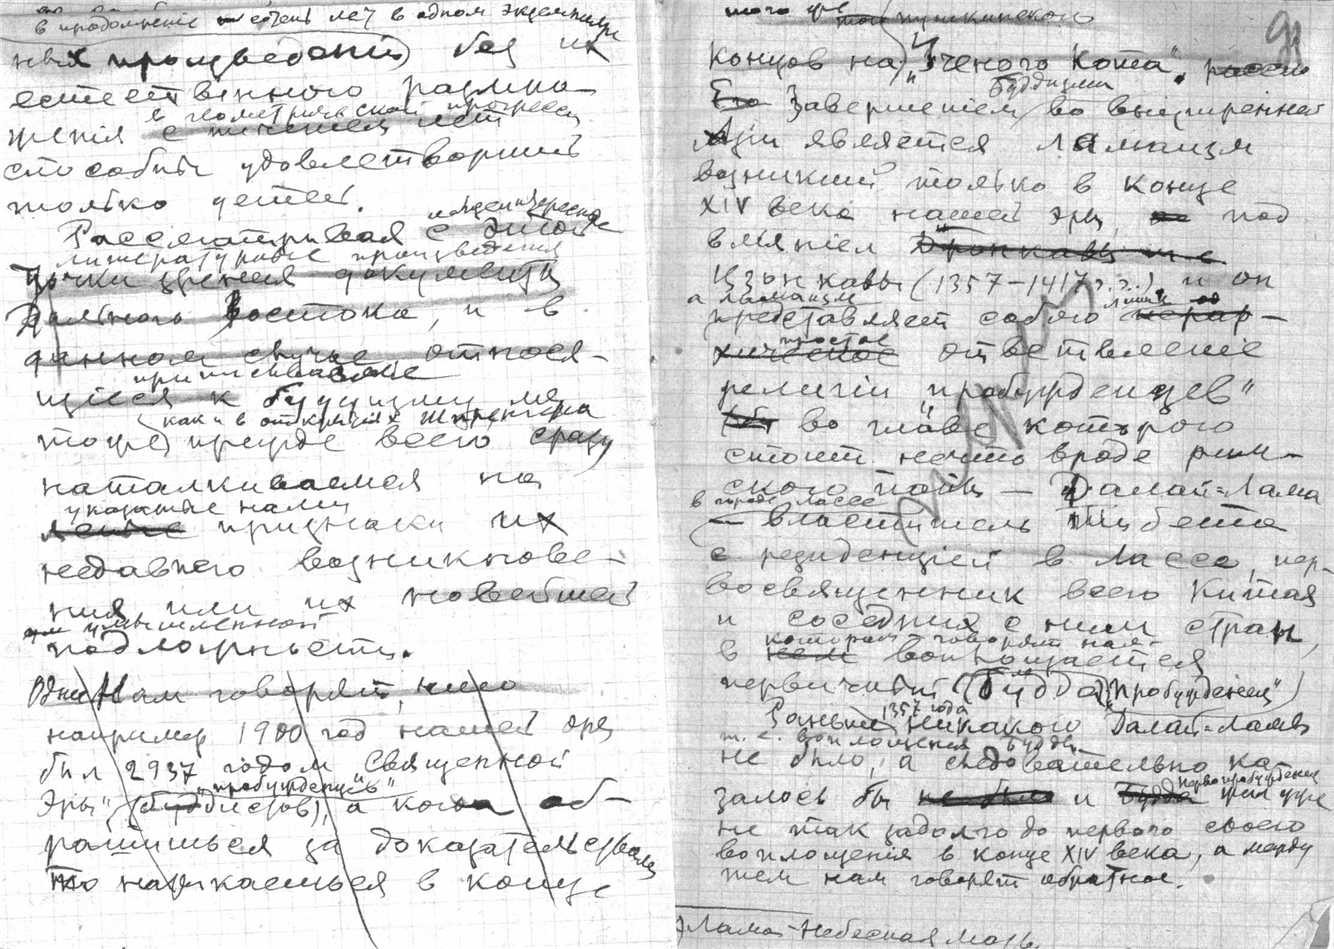 в продолжение сотен лет в одном экземпляре
ных произведений) без их
естественного размно-
в геометрической прогрессии
жения с течением лет
способны удовлетворить
только детей.
Рассматривая с этой
литературные произведения
точки зрения документы
Дальнего Востока, и в
данном случае, относя-
приписываемые
щиеся к будущему мы
как и в открытиях Шпренгера
тоже прежде всего сразу
наталкиваемся на
указанные нами
признаки их
недавнего возникнове-
ния или их новейшей
умышленной
подложности.
Одни нам говорят, что
например 1900 год нашей эры
был 2937 годом Священной
"пробужденцев"
Эры" (буддистов), а когда об-
ратишься за доказательствами
то натыкаешься в конце
того же пушкинского
концов на "Ученого Кота".
буддизма
Завершением во внутренней
Азии является ламаизм
возникший только в конце
XIV века нашей эры, под
влянием
Цзонкавы (1357-1417г.?), и он
а ламаизм лишь
представляет собою иерар-
простое
хическое ответвление
религии "пробужденцев"
во главе которого
стоит нечто вроде рим-
ского папы — Далай-Лама
в городе Лассе
— властитель Тибета
с резиденцией в Лассе, пер-
восвященник всего Китая
и соседних с ним стран,
котором говорят нам-
в нем воплощается
первичный (Будда "Пробужденец")
1357 года
Раньше никакого Далай-Ламы
т. е. воплощения Будды
не было, а следовательно ка-
первопробужденец
залось бы не был и Будда жил уже
не так задолго до первого своего
воплощения в конце XIV века, а между
тем нам говорят обратное.
Лама-Небесная мать.